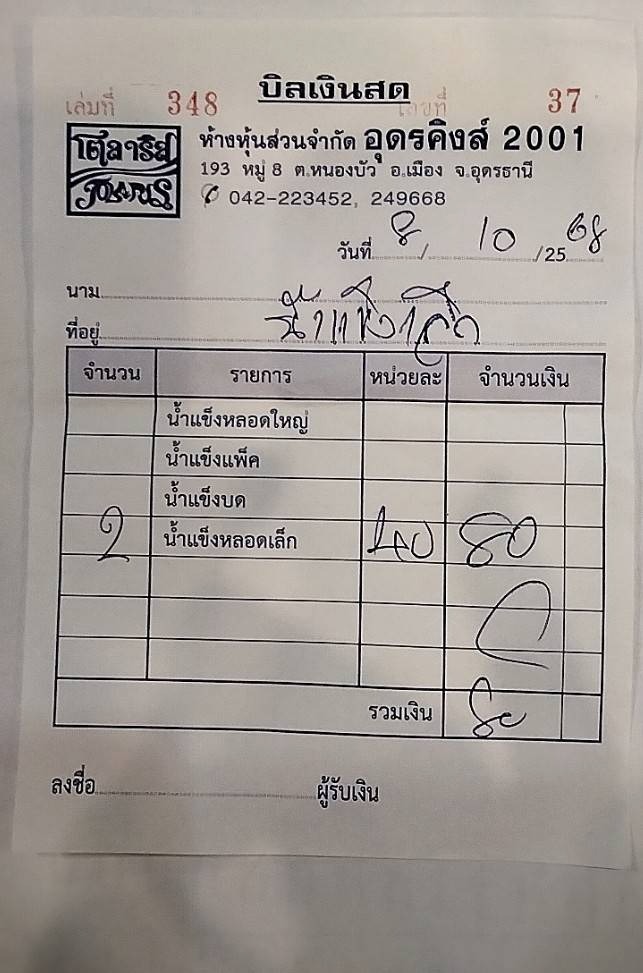 บิลเงินสด
เล่มที่ 348 เลขที่ 37
โตลาริส ห้างหุ้นส่วนจำกัด อุดรคิงส์ 2001
193 หมู่ 8 ต.หนองบัว อ.เมือง จ.อุดรธานี
042-223452, 249668
วันที่ 8/10/2568
นาม
ที่อยู่
จำนวน รายการ หน่วยละ จำนวนเงิน
น้ำแข็งหลอดใหญ่
น้ำแข็งแพ็ค
น้ำแข็งบด
2 น้ำแข็งหลอดเล็ก 40 80
รวมเงิน 80
ลงชื่อ ผู้รับเงิน